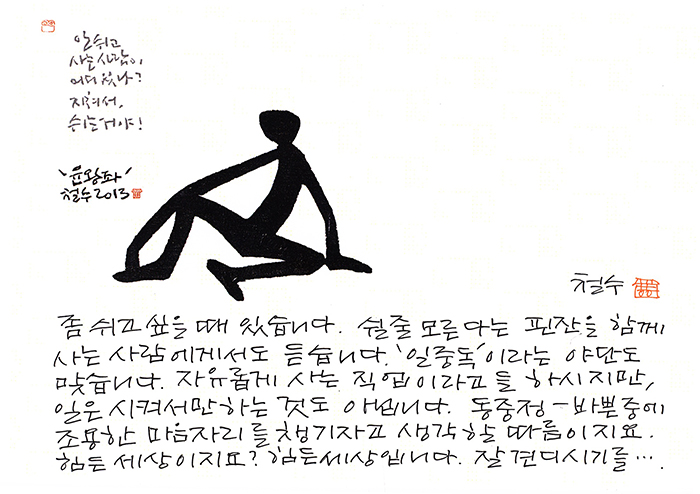 안 쉬고
사는 사람이
어디 있나?
지쳐서,
쉬는거야!
'윤왕좌'
철수 2013
철수
좀 쉬고 싶을 때 있습니다. 쉴줄 모른다는 핀잔을 함께
사는 사람에게서도 듣습니다. '일중독'이라는 야단도
맞습니다. 자유롭게 사는 직업이라고들 하시지만,
일은 시켜서만 하는 것도 아닙니다. 동중정-바쁜 중에
조용한 마음자리를 챙기자고 생각할 따름이지요.
힘든 세상이지요? 힘든 세상입니다. 잘 견디시기를…